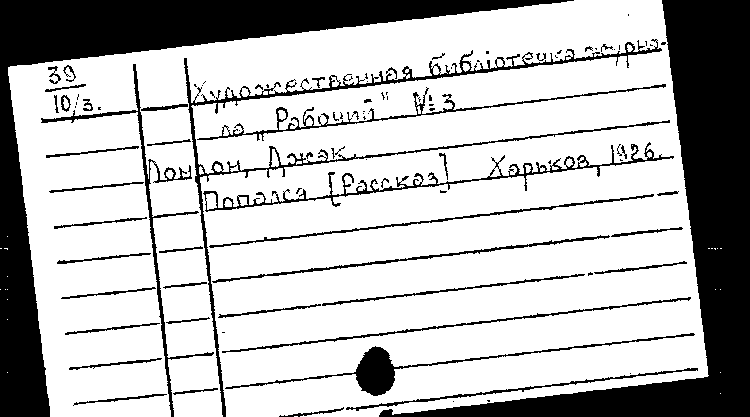 39
10/3.
Художественная библіотечка журна-
ла „Рабочий" № 3
Лондон, Джэк.
Попался [Рассказ] Харьков, 1926.